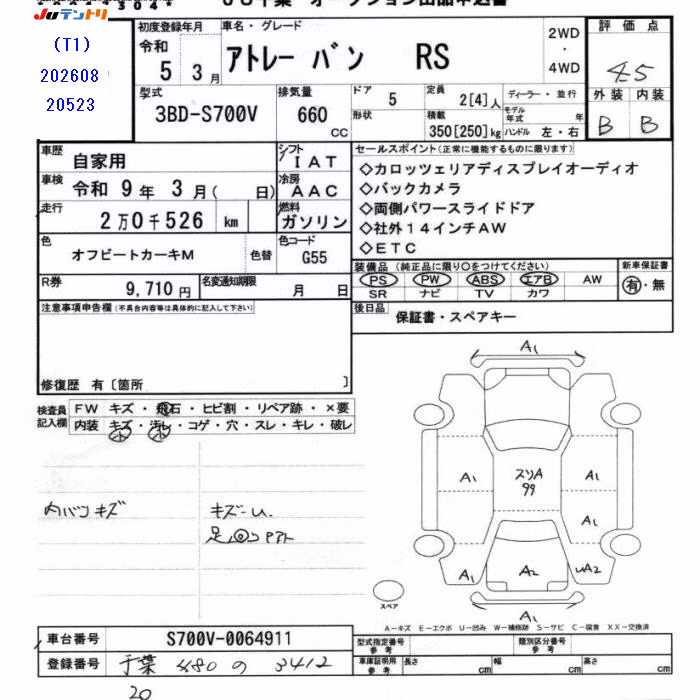 JUテントリ
(T1)
202608
20523
初度登録年月
令和
5 年 3 月
車名・グレード
アトレー バン RS
2WD
・
4WD
評価点
4.5
外装 内装
B B
型式
3BD-S700V
排気量
660
CC
ドア
5
形状
定員
2[4]人
積載
350[250]kg
ディーラー・並行
モデル年式 年
ハンドル 左・右
車歴
自家用
シフト
IAT
車検
令和 9 年 3 月( 日)
冷房
AAC
走行
2 万 0 千 526 km
燃料
ガソリン
色
オフビートカーキM
色替
色コード
G55
R券
9,710 円
名変通知期限
月 日
セールスポイント(正常に機能するものに限ります)
◇カロッツェリアディスプレイオーディオ
◇バックカメラ
◇両側パワースライドドア
◇社外14インチAW
◇ETC
装備品(純正品に限り○をつけてください)
PS PW ABS エアB AW
SR ナビ TV カワ
新車保証書
有・無
後日品
保証書・スペアキー
注意事項申告欄(不具合内容等は具体的に記入して下さい)
修復歴 有〔箇所 〕
検査員
記入欄
FW キズ・飛石・ヒビ割・リペア跡・×要
内装 キズ・汚レ・コゲ・穴・スレ・キレ・破レ
内バンキズ
キズ-U
A1
A1
A1
A1
スソA
99
A1
A2
UA2
A1
スペア
A-キズ E-エクボ U-凹み W-補修跡 S-サビ C-腐食 XX-交換済
車台番号
S700V-0064911
登録番号
千葉 480 の 3412
20
型式指定番号
参考
類別区分番号
参考
車庫証明用
参考
長さ cm
幅 cm
高さ cm